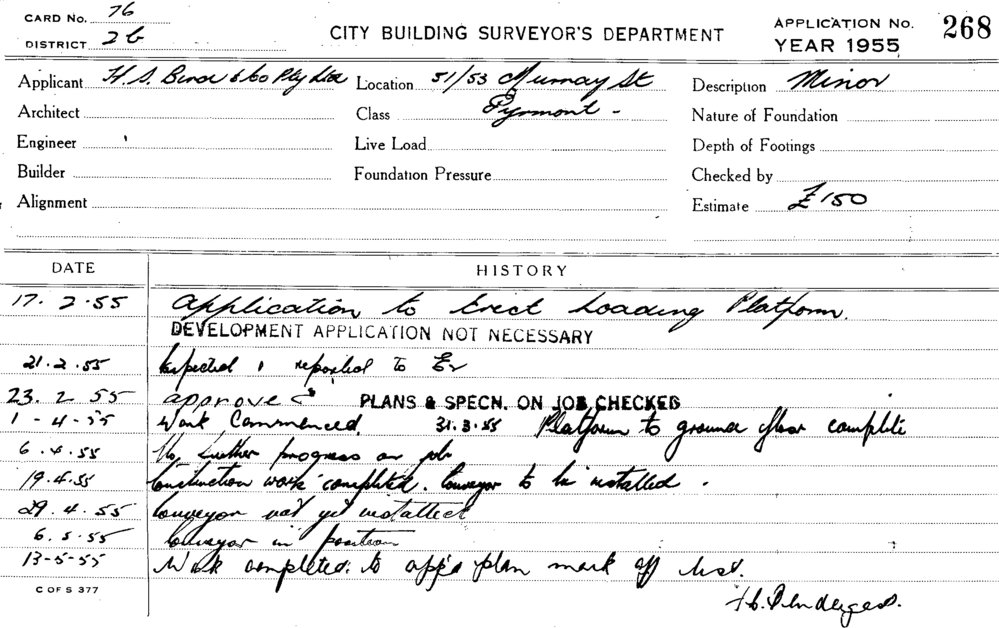 CARD No. 76
DISTRICT 26
CITY BUILDING SURVEYOR'S DEPARTMENT
APPLICATION No. 268
YEAR 1955
Applicant H. S. & Co Pty Ltd Location 51/53 Murray St Description Minor
Architect Class Pyrmont - Nature of Foundation
Engineer Live Load Depth of Footings
Builder Foundation Pressure Checked by
Alignment Estimate £150
DATE HISTORY
17. 2. 55 Application to Erect Loading Platform.
DEVELOPMENT APPLICATION NOT NECESSARY
21. 2. 55 Inspected & reported to
23. 2 55 approved PLANS & SPECN. ON JOB CHECKED
1 - 4 - 55 Work Commenced. 31. 3. 55 Platform to ground floor complete
6. 4. 55 No further progress on job
19. 4. 55 Construction work completed. Conveyor to be installed.
29. 4. 55 Conveyor not yet installed
6. 5. 55 Conveyor in position
13-5-55 Work completed. to app'd plan mark off list.
C OF S 377